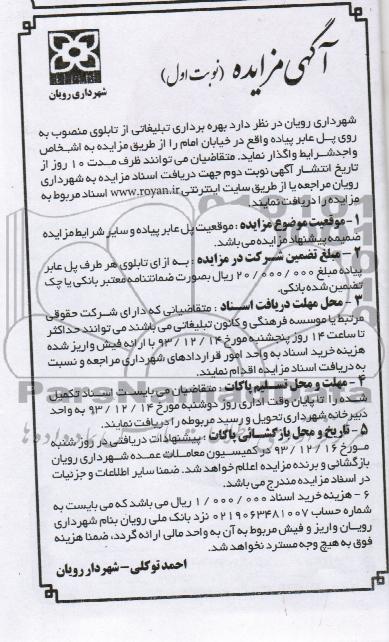 آگهی مزایده (نوبت اول)
شهرداری رویان
شهرداری رویان در نظر دارد بهره برداری تبلیغاتی از تابلوی منصوب به
روی پل عابر پیاده واقع در خیابان امام را از طریق مزایده به اشخاص
واجدشرایط واگذار نماید. متقاضیان می توانند ظرف مدت ۱۰ روز از
تاریخ انتشار آگهی نوبت دوم جهت دریافت اسناد مزایده به شهرداری
رویان مراجعه یا از طریق سایت اینترنتی www.royan.ir اسناد مربوط به
مزایده را دریافت نمایند.
۱- موقعیت موضوع مزایده : موقعیت پل عابر پیاده و سایر شرایط مزایده
ضمیمه پیشنهاد مزایده می باشد.
۲- مبلغ تضمین شرکت در مزایده : به ازای تابلوی هر طرف پل عابر
پیاده مبلغ ۲۰/۰۰۰/۰۰۰ ریال بصورت ضمانتنامه معتبر بانکی یا چک
تضمین شده بانکی.
۳- محل مهلت دریافت اسناد : متقاضیانی که دارای شرکت حقوقی
مرتبط یا موسسه فرهنگی و کانون تبلیغاتی می باشند می توانند حداکثر
تا ساعت ۱۴ روز پنجشنبه مورخ ۹۳/۱۲/۱۴ با ارائه فیش واریز شده
هزینه خرید اسناد به واحد امور قراردادهای شهرداری مراجعه و نسبت
به دریافت اسناد مزایده اقدام نمایند.
۴- مهلت و محل تسلیم پاکات : متقاضیان می بایست اسناد تکمیل
شده را تا پایان وقت اداری روز دوشنبه مورخ ۹۳/۱۲/۱۴ به واحد
دبیرخانه شهرداری تحویل و رسید مربوطه را دریافت نمایند.
۵- تاریخ و محل بازگشائی پاکات : پیشنهادات دریافتی در روز شنبه
مورخ ۹۳/۱۲/۱۶ در کمیسیون معاملات عمده شهرداری رویان
بازگشائی و برنده مزایده اعلام خواهد شد. ضمنا سایر اطلاعات و جزئیات
در اسناد مزایده مندرج می باشد.
۶- هزینه خرید اسناد ۱/۰۰۰/۰۰۰ ریال می باشد که می بایست به
شماره حساب ۰۲۱۹۰۶۳۴۸۱۰۰۷ نزد بانک ملی رویان بنام شهرداری
رویان واریز و فیش مربوط به آن به واحد مالی ارائه گردد، ضمنا هزینه
فوق به هیچ وجه مسترد نخواهد شد.
احمد توکلی- شهردار رویان